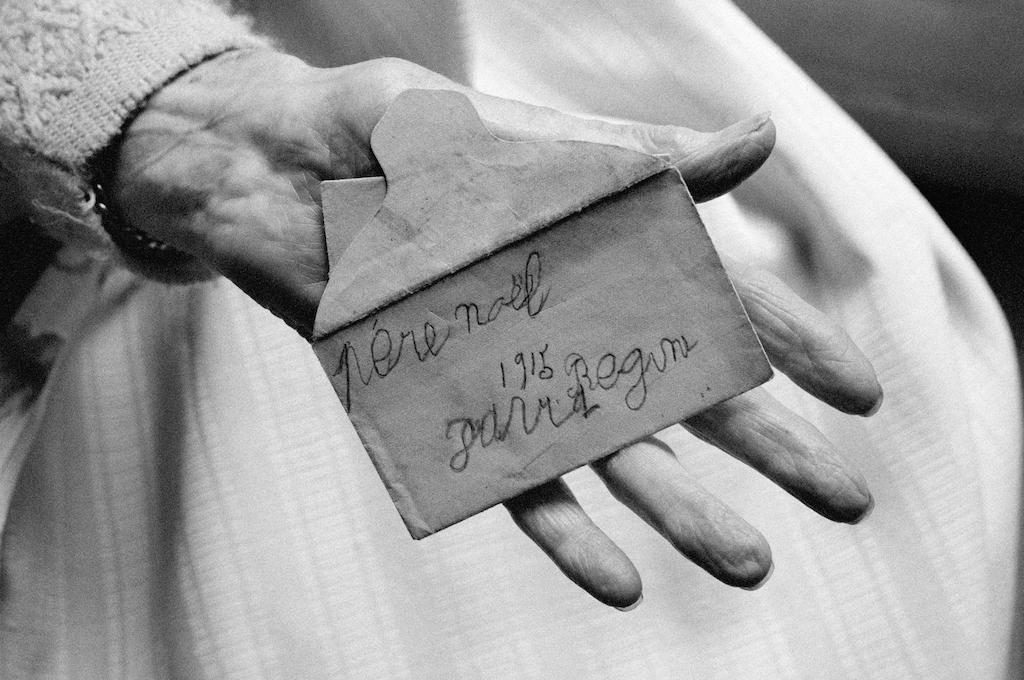 père noël
1915
Regina